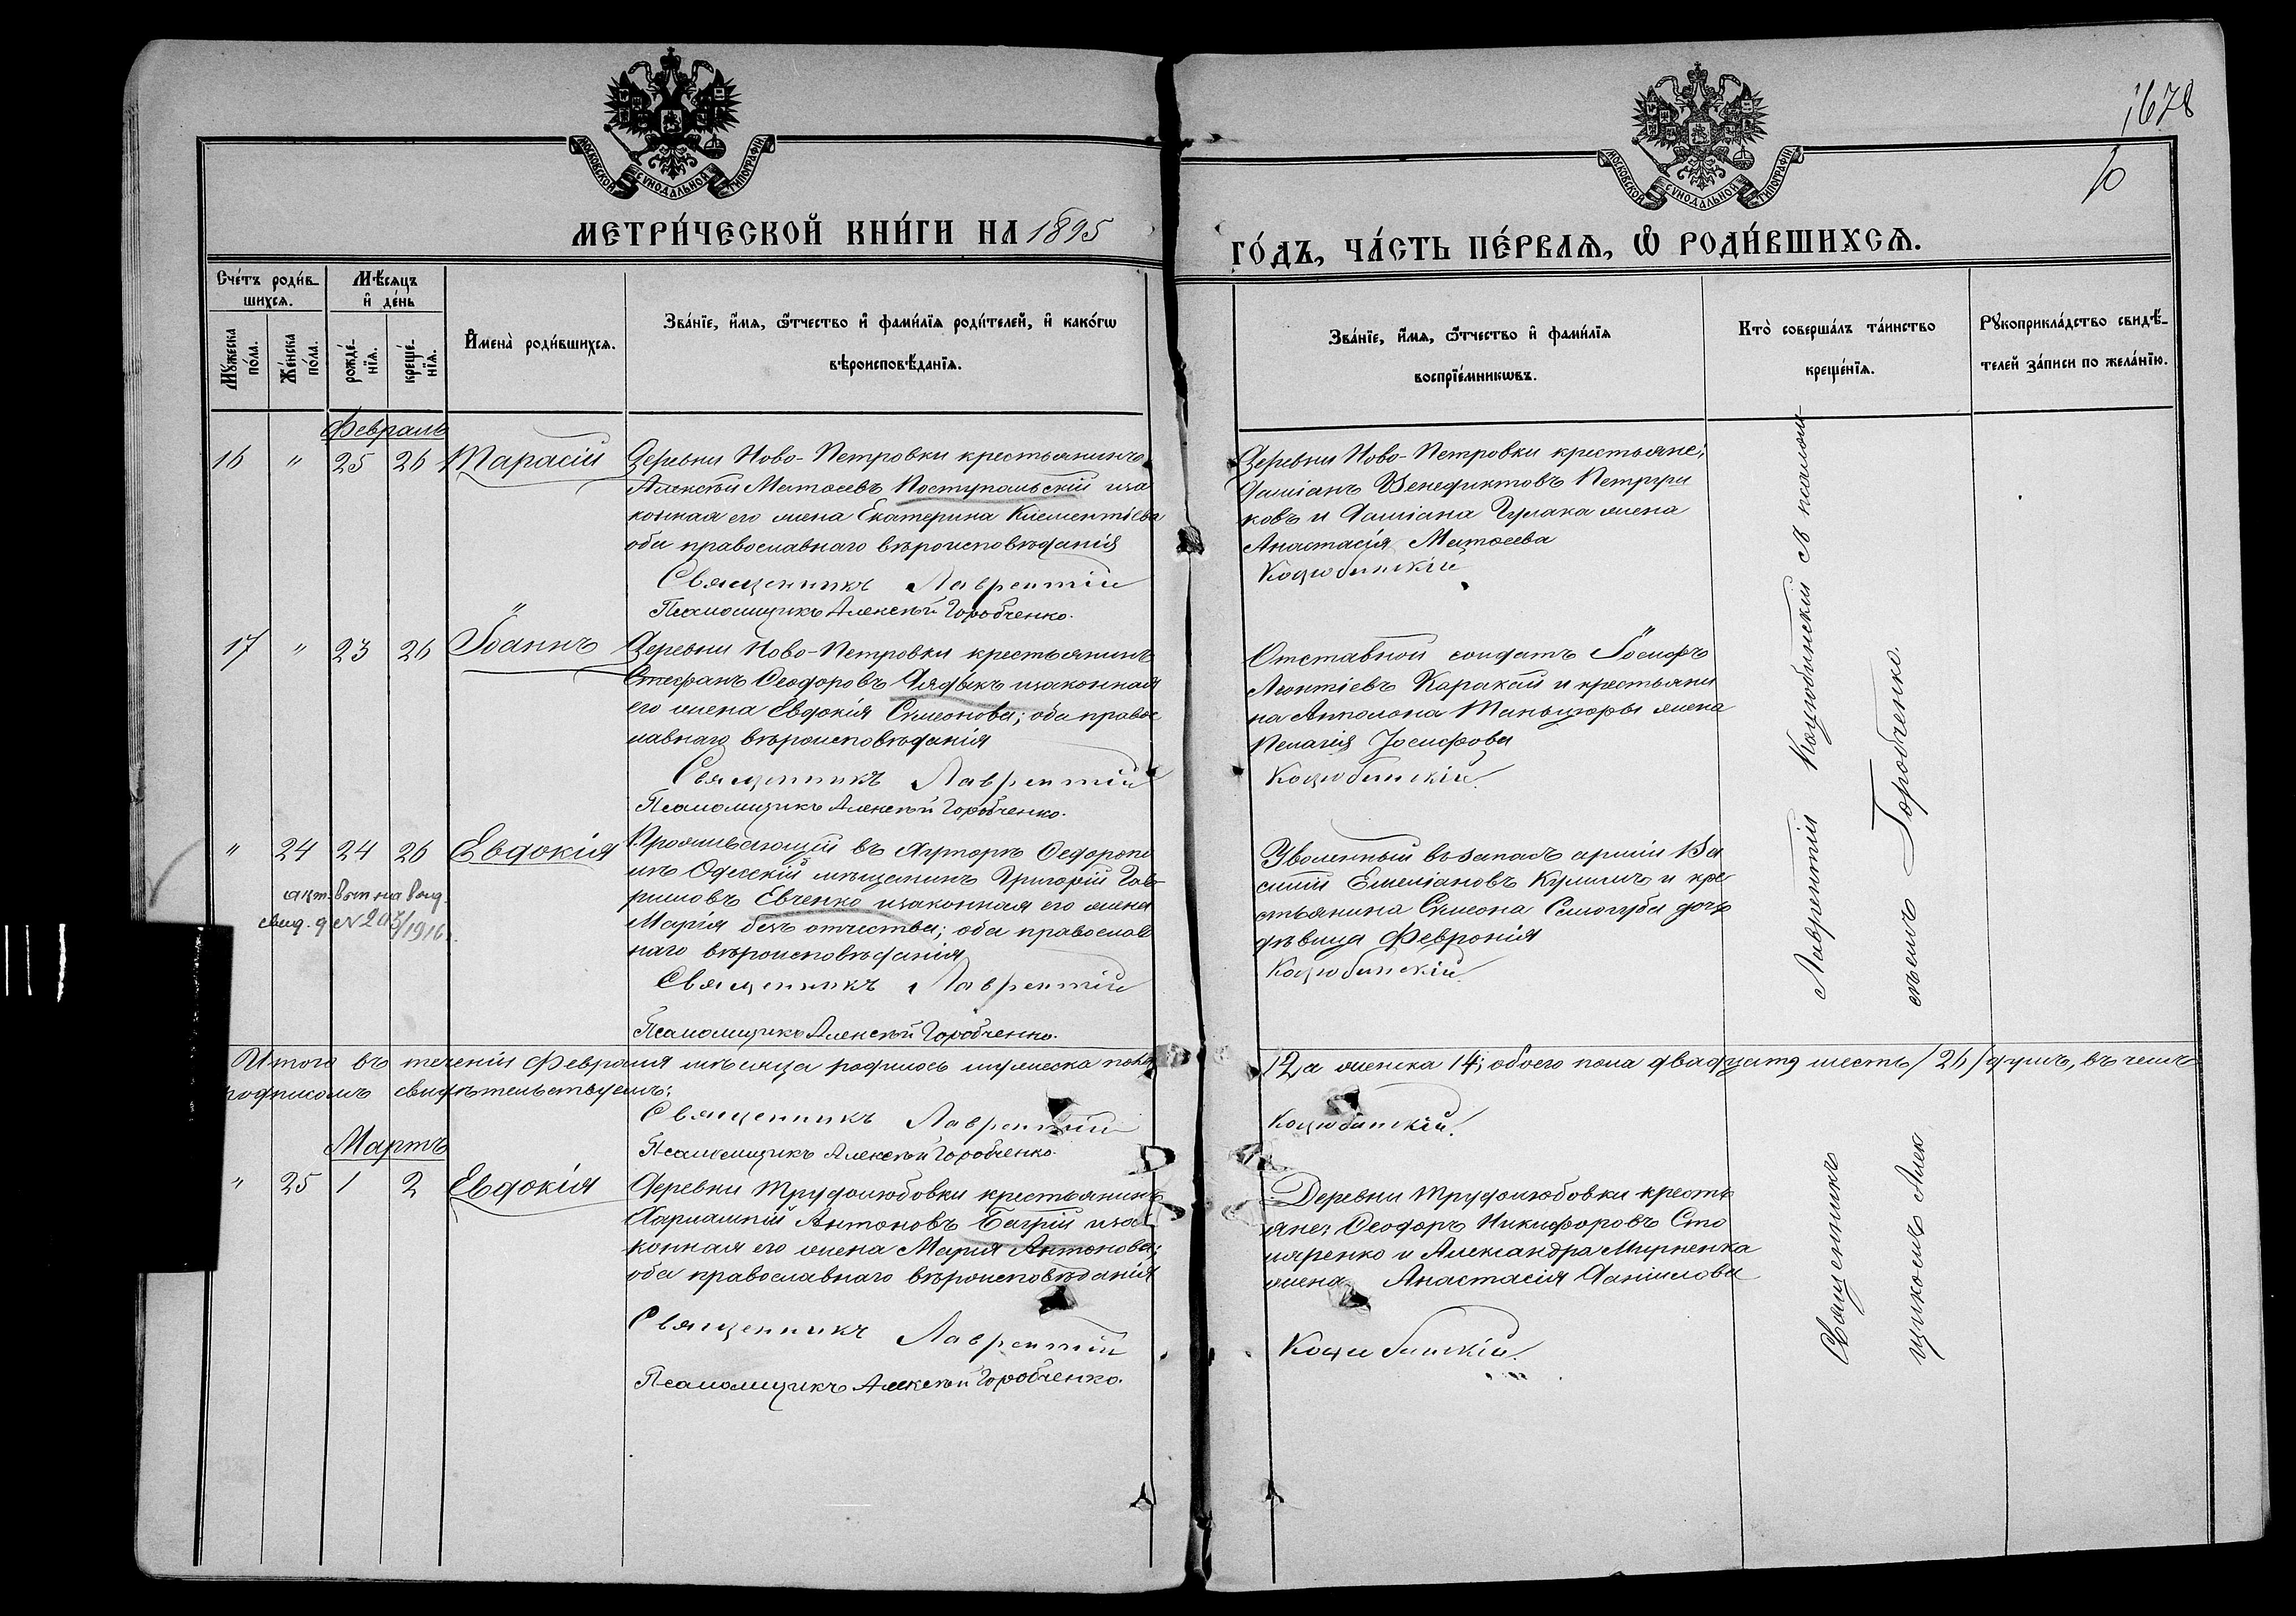 1678
10
МОСКОВСКОЙ СѴНОДАЛЬНОЙ ТИПОГРАФІИ
МОСКОВСКОЙ СѴНОДАЛЬНОЙ ТИПОГРАФІИ
МЕТРИ́ЧЕСКОЙ КНИ́ГИ НА 1895
ГО́ДЪ, ЧА́СТЬ ПЕ́РВАѦ, Ѿ РОДИ́ВШИХСѦ.
Сче́тъ роди́в-
шихсѧ.
Мѣ́сѧцъ
и҆ де́нь
Мꙋ́жеска
по́ла.
Же́нска
по́ла.
рожде́-
нїѧ.
креще́-
нїѧ.
И҆мена̀ роди́вшихсѧ.
Зва́нїе, и҆́мѧ, ѻ҆́тчество и҆ фами́лїѧ роди́телей, и҆ како́гѡ
вѣроисповѣ́данїѧ.
Зва́нїе, и҆́мѧ, ѻ҆́тчество и҆ фами́лїѧ
воспрїе́мникѡвъ.
Кто̀ соверша́лъ та́инство
креще́нїѧ.
Рꙋкоприкла́дство свидѣ́-
телей за́писи по жела́нїю.
Февраль
16 " 25 26 Тарасій
Деревни Ново-Петровки крестьянинъ
Алексѣй Матѳеевъ Поступальскій и за
конная его жена Екатерина Климентіева
оба православнаго вѣроисповѣданія
Священникъ Лаврентій
Псаломщикъ Алексѣй Горобченко.
Деревни Ново-Петровки крестьяне:
Даміанъ Венедиктовъ Петрун
ковъ и Даміана Гулака жена
Анастасія Матѳеева
Коцюбинскій
17 " 23 26 Іоаннъ
Деревни Ново-Петровки крестьянинъ
Стефанъ Ѳеодоровъ Дядыкъ и законная
его жена Евдокія Симеонова; оба правос
лавнаго вѣроисповѣданія
Священникъ Лаврентій
Псаломщикъ Алексѣй Горобченко.
Отставной солдатъ Іосифъ
Леонтіевъ Каракай и крестьяни
на Апполона Маньцюры жена
Пелагія Іосифова
Коцюбинскій
" 24 24 26 Евдокія
свид. № 203/1916
Проживающій въ хуторѣ Ѳедоропо
лѣ Одесскій мѣщанинъ Григорій Гав
риловъ Евченко и законная его жена
Марія безъ отчества; оба православ
наго вѣроисповѣданія
Священникъ Лаврентій
Псаломщикъ Алексѣй Горобченко.
Уволенный въ запасъ арміи Ва
силій Емеліановъ Кулишъ и кре
стьянина Симеона Самогуба дочь
дѣвица Февронія
Коцюбинскій
Итого въ теченіи Февраля мѣсяца родилось мужеска пола 12, а женска 14; обоего пола двадцать шесть /26/ душъ, въ чемъ
подписомъ свидѣтельствуемъ:
Священникъ Лаврентій Коцюбинскій.
Псаломщикъ Алексѣй Горобченко.
Мартъ
" 25 1 2 Евдокія
Деревни Трудолюбовки крестьянинъ
Харлампій Антоновъ Багрій и за
конная его жена Марія Антонова;
оба православнаго вѣроисповѣданія
Священникъ Лаврентій
Псаломщикъ Алексѣй Горобченко.
Деревни Трудолюбовки кресть
яне: Ѳеодоръ Никифоровъ Сто
ляренко и Александра Мирненка
жена Анастасія Даніилова
Коцюбинскій.
Священникъ Лаврентій Коцюбинскій съ псалом
щикомъ Алек
сѣемъ Горобченко.